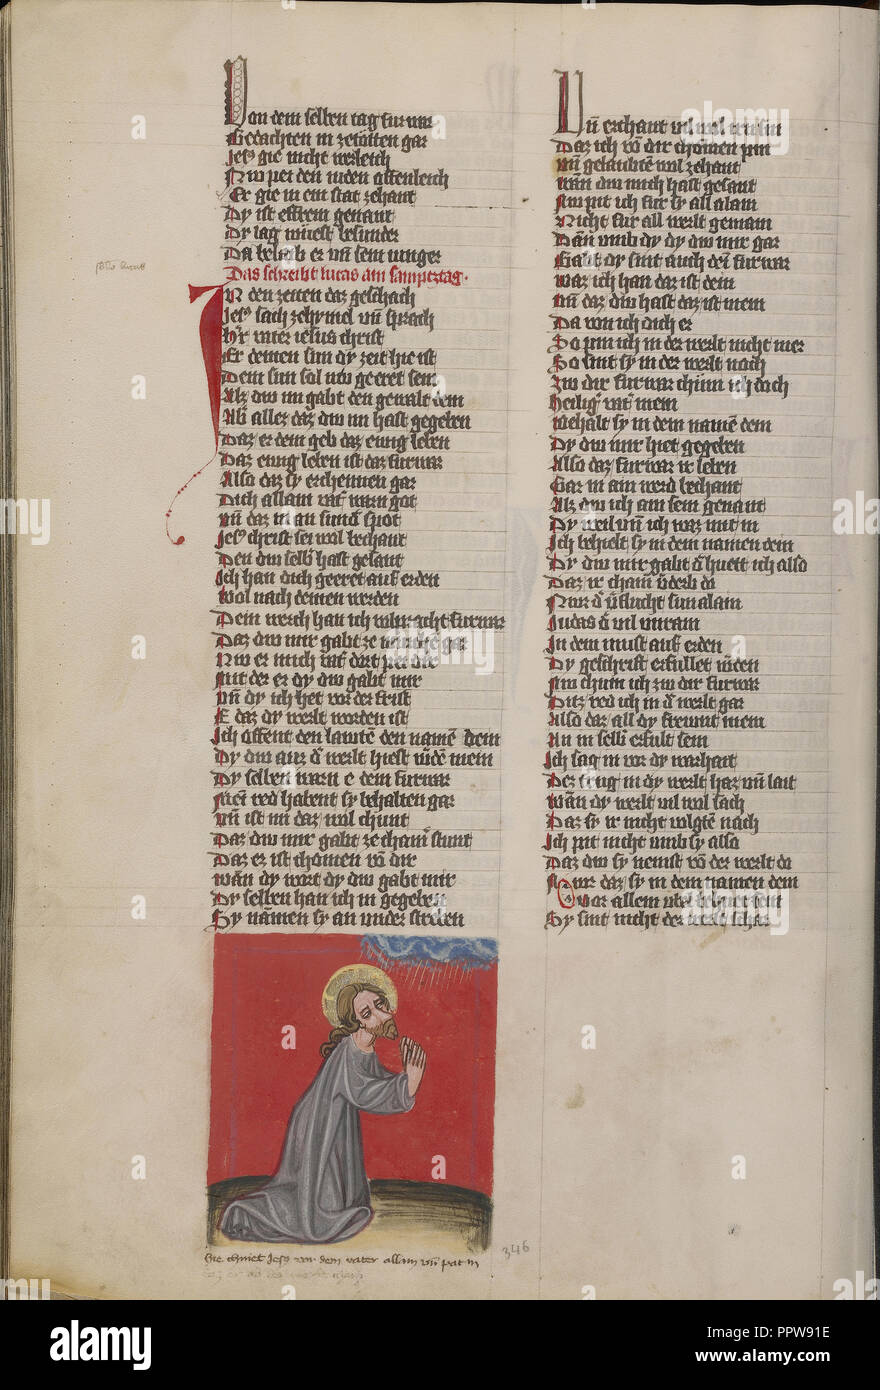 Von dem selben tag furwar
Gedachten in ze totten gar
Jesꝰ gie nicht werleich
Nw pei den iuden offenleich
Er gie in ein stat zehant
Dy ist effrem genant
Dy lag wuest besunder
Da belaib er vn̄ sein iunger
Das schreibt lucas am samptztag.
In den zeiten daz geschach
Jesꝰ sach ze hymel vn̄ sprach
Herr vater iesus christ
Er chomen sun dy zeit hie ist
Dein sun sol nw geeret sein
Alz dw im gabt den gewalt dein
Alz daz dw im hast gegeben
Daz er dem geb daz ewig leben
Daz ewig leben ist daz furwar
Also daz sy erchennen gar
Dich allain got
Vn̄ daz in an sund spot
Jesꝰ christ sei wol bechant
Den dw selb hast gesant
Ich han dich geeret auf erden
Wol nach deinen werden
Dein werch han ich volpracht furwar
Daz dw mir gabt ze wurche gar
Nw er mich vat dort pei dir
Mit der er dy dw gabt mir
Vn̄ dy ich het vor der frist
E daz dy werlt worden ist
Ich offent den lawten den namē dein
Dy dw auz d werlt hiest mein
Dy selben warn e dein furwar
Mein red habent sy behalten gar
Vn̄ ist in daz wol chunt
Daz dw mir gabt ze stunt
Daz er ist chomen vō dir
Wan dy wort dy dw gabt mir
Dy selben han ich in gegeben
Sy namen sy an under streben
Vn̄ erchant vil wol
Daz ich vō dir chomen pin
Vn̄ gelaubten wol zehant
Wan dw mich hast gesant
Nw pit ich fur sy all alain
Nicht fur all werlt gemain
Dan umb dy dy dw mir gar
Gabt dy sint auch dein furwar
Waz ich han daz ist dein
Vn̄ daz dw hast daz ist mein
Da von ich dich er
So pin ich in der werlt nicht mer
So sint sy in der werlt noch
Zw dir furwar chum ich doch
Heilig vat mein
Behalt sy in dem namē dein
Dy dw mir hiet gegeben
Also daz furwar ir leben
Gar in ain werd bechant
Alz dw ich ain sein genant
Dy weil vn̄ ich waz mit in
Ich behielt sy in dem namen dein
Dy dw mir gabt d huett ich also
Daz ir chain da
Nur d sun alain
Judas d vil unrain
In dem must auf erden
Dy geschrift erfullet werden
Nw chum ich zw dir furwar
Ditz red ich in d werlt gar
Also daz all dy frewnt mein
An in selb erfult sein
Ich sag in vor dy warhait
Der in dy werlt haz vn̄ lait
Wan dy werlt vil wol sach
Daz sy ir nicht volgten nach
Ich pit nicht umb sy also
Daz dw sy nemist vō der werlt do
Nwr daz sy in dem namen dein
Vor allem ubel behuet sein
Sy sint nicht der werlt schar
hie chniet Jesꝰ vor dem vater allain vn̄ pat in
346
alamy
Image ID: PPW91E
www.alamy.com